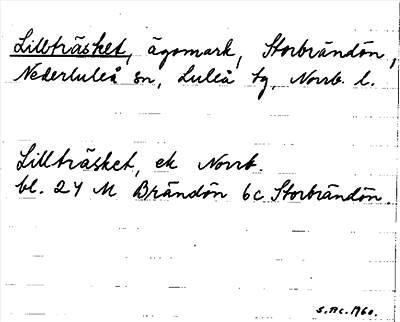 Lillträsket, ägomark, Storbrändön,
Nederluleå sn, Luleå tg, Norrb. l.
Lillträsket, ek Norrb.
bl. 24 M Brändön 6c Storbrändön.
1960.